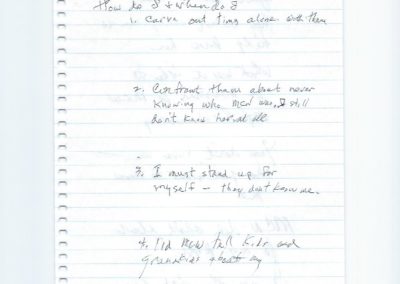 How do I & when do I
1. Carve out time alone with them
2. Confront them about never
knowing who MCW was. I still
don't know
3. I must stand up for
myself – they don't know me.
4. Did MCW tell kids and
grandkids about my